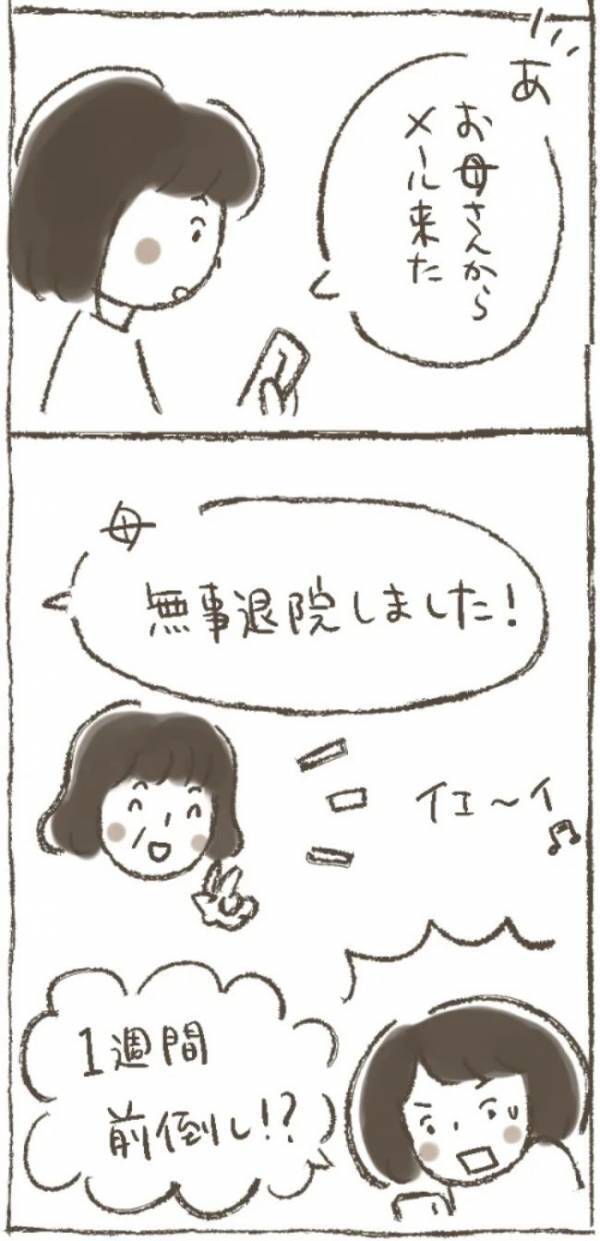 あ
お母さんから
メール来た
母
無事退院しました!
イエ〜イ♫
1週間
前倒し!?